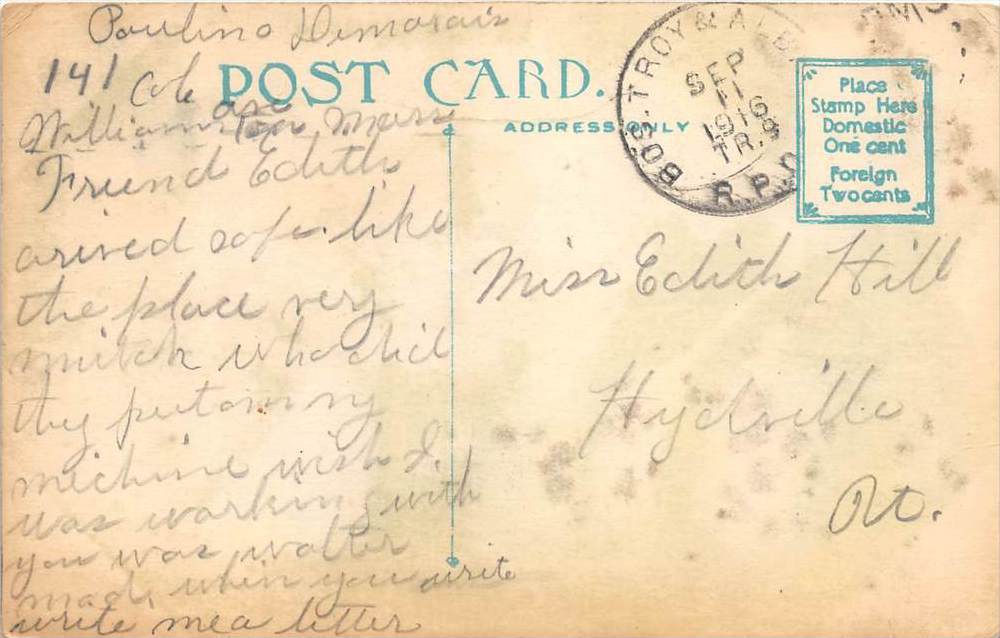 Paulino Demarais
141 Cole ave
Williamston Mass
Friend Edith
arived safe. like
the place very
mutch who did
they put on my
michine wish I
was working with
you was walter
mad. when you write
write me a letter
POST CARD.
ADDRESS ONLY
BOS. TROY & ALB
SEP
11
1916
TR.9
R.P.O
Place
Stamp Here
Domestic
One cent
Foreign
Two cents
Miss Edith Hill
Hydville
Vt.